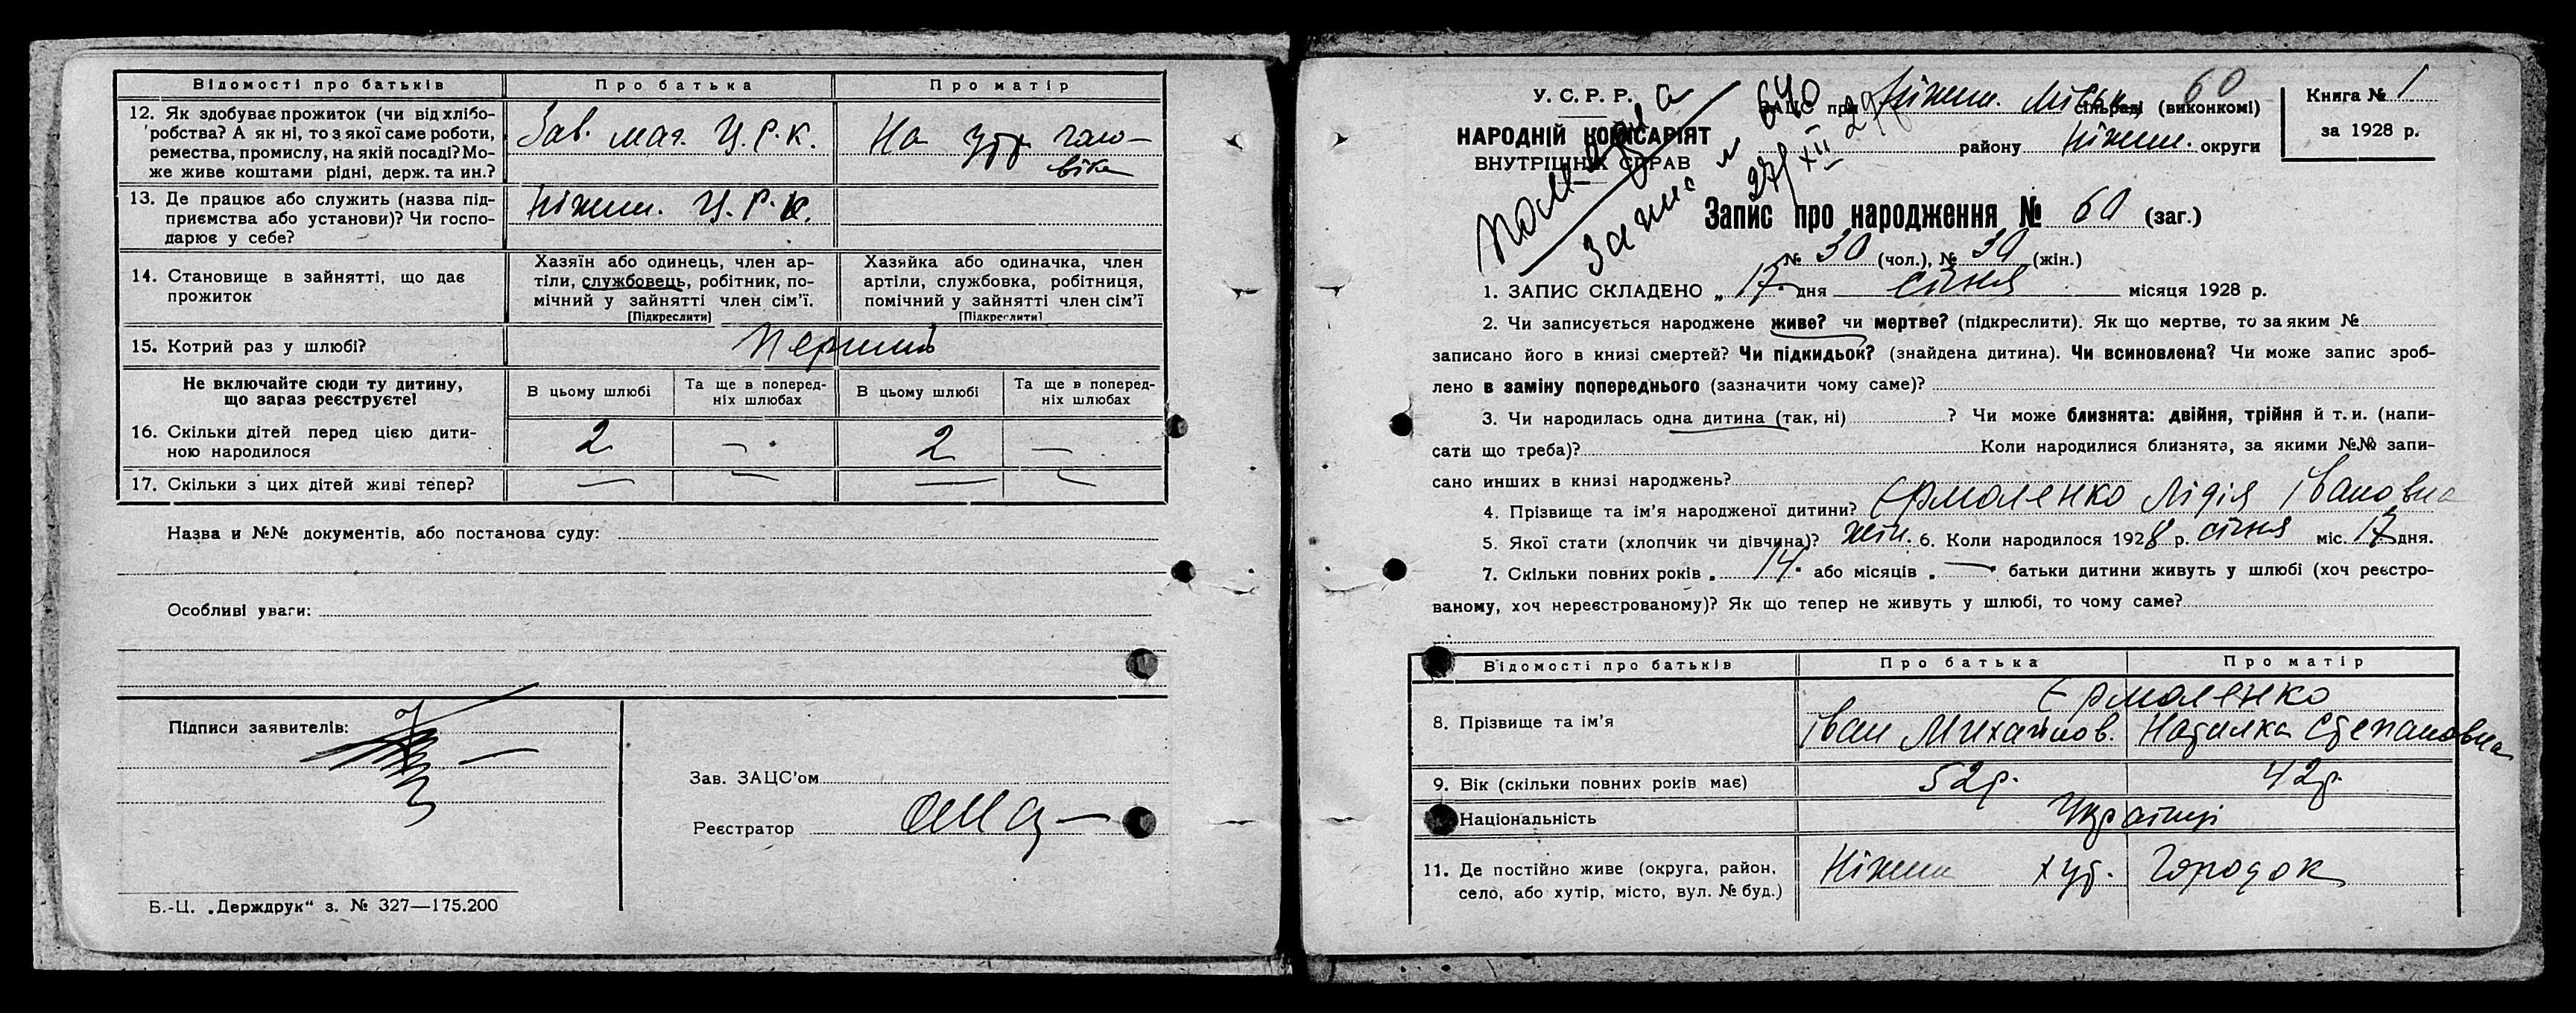 Відомості про батьків | Про батька | Про матір
12. Як здобуває прожиток (чи від хлібо-
робства? А як ні, то з якої саме роботи,
ремества, промислу, на якій посаді? Мо-
же живе коштами рідні, держ. та ин.?
Зав. маг. Ц.Р.К. | На утр. чоло-
віка
13. Де працює або служить (назва під-
приємства або установи)? Чи госпо-
дарює у себе?
Ніжин. Ц.Р.К.
14. Становище в зайнятті, що дає
прожиток
Хазяїн або одинець, член ар-
тіли, службовець, робітник, по-
мічний у зайнятті член сім'ї.
[Підкреслити]
Хазяйка або одиначка, член
артіли, службовка, робітниця,
помічний у зайнятті член сім'ї
[Підкреслити]
15. Котрий раз у шлюбі? Перший
Не включайте сюди ту дитину,
що зараз реєструєте!
В цьому шлюбі | Та ще в поперед-
ніх шлюбах | В цьому шлюбі | Та ще в поперед-
ніх шлюбах
16. Скільки дітей перед цією дити-
ною народилося
2 | — | 2 | —
17. Скільки з цих дітей живі тепер? — | — | — | —
Назва и №№ документів, або постанова суду:
Особливі уваги:
Підписи заявителів:
Зав. ЗАЦС'ом
Реєстратор
Б.-Ц. „Держдрук“ з. № 327—175.200
У. С. Р. Р.
НАРОДНІЙ КОМІСАРІЯТ
ВНУТРІШНІХ СПРАВ
Запис № 640
27/XII 29
60
ЗАЦС при Ніжин. Міськ. сільраді (виконкомі)
району Ніжин. округи
Книга № 1
за 1928 р.
Запис про народження № 60 (заг.)
№ 30 (чол.), № 30 (жін.)
1. ЗАПИС СКЛАДЕНО „ 17 дня січня місяця 1928 р.
2. Чи записується народжене живе? чи мертве? (підкреслити). Як що мертве, то за яким №
записано його в книзі смертей? Чи підкидьок? (знайдена дитина). Чи всиновлена? Чи може запис зроб-
лено в заміну попереднього (зазначити чому саме)?
3. Чи народилась одна дитина (так, ні) ? Чи може близнята: двійня, трійня й т. и. (напи-
сати що треба)? Коли народилися близнята, за якими №№ запи-
сано инших в книзі народжень?
4. Прізвище та ім'я народженої дитини? Єрмоленко Лідія Івановна
5. Якої стати (хлопчик чи дівчина)? жін. 6. Коли народилося 1928 р. січня міс. 17 дня.
7. Скільки повних років „ 14. або місяців „ — батьки дитини живуть у шлюбі (хоч реєстро-
ваному, хоч нереєстрованому)? Як що тепер не живуть у шлюбі, то чому саме?
Відомості про батьків | Про батька | Про матір
Єрмоленко
8. Прізвище та ім'я | Іван Михайлов. | Наталка Степановна
9. Вік (скільки повних років має) | 52р. | 42р.
Національність | Українці
11. Де постійно живе (округа, район,
село, або хутір, місто, вул. № буд.)
Ніжин хут. Городок